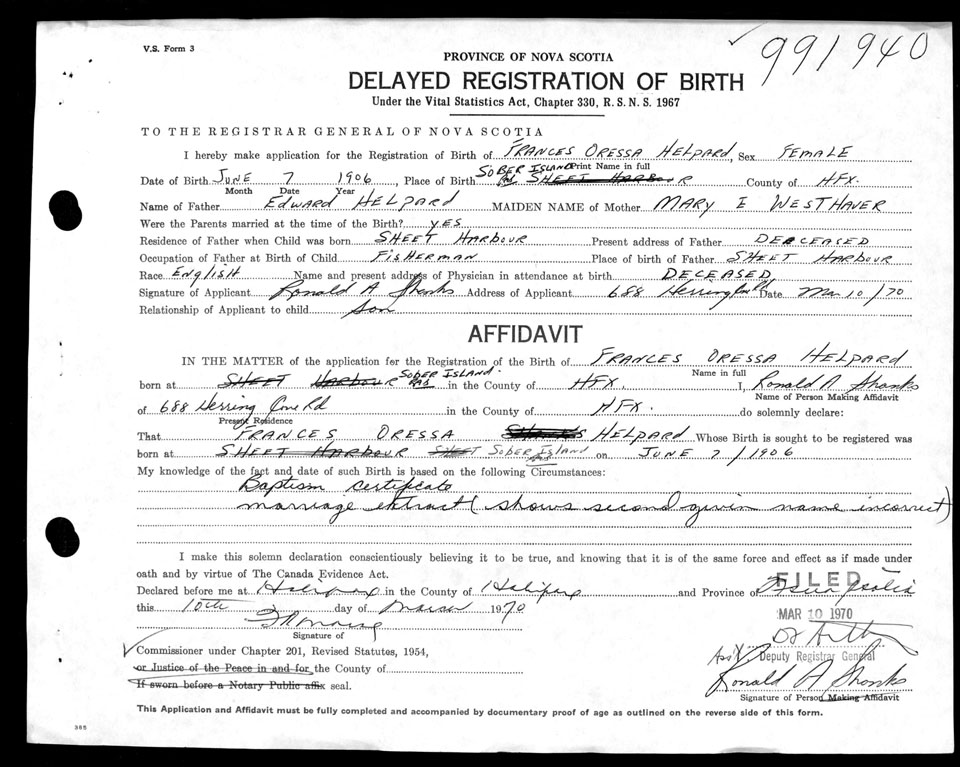 V.S. Form 3
991940
PROVINCE OF NOVA SCOTIA
DELAYED REGISTRATION OF BIRTH
Under the Vital Statistics Act, Chapter 330, R.S.N.S. 1967
TO THE REGISTRAR GENERAL OF NOVA SCOTIA
I hereby make application for the Registration of Birth of FRANCES ORESSA HELPARD, Sex FEMALE
Print Name in full
SOBER ISLAND
Date of Birth JUNE 7 1906, Place of Birth SHEET HARBOUR County of HFX.
Month Date Year
Name of Father EDWARD HELPARD MAIDEN NAME of Mother MARY E WESTHAVER
Were the Parents married at the time of the Birth? YES
Residence of Father when Child was born SHEET HARBOUR Present address of Father DECEASED
Occupation of Father at Birth of Child FISHERMAN Place of birth of Father SHEET HARBOUR
Race ENGLISH Name and present address of Physician in attendance at birth DECEASED
Signature of Applicant Ronald A Shanks Address of Applicant 688 Herring Date Mar 10/70
Relationship of Applicant to child Son
AFFIDAVIT
IN THE MATTER of the application for the Registration of the Birth of FRANCES ORESSA HELPARD
Name in full
SOBER ISLAND.
born at SHEET HARBOUR in the County of HFX. I, Ronald A Shanks
Name of Person Making Affidavit
of 688 Herring Cove Rd in the County of HFX. do solemnly declare:
Present Residence
That FRANCES ORESSA SHANKS HELPARD Whose Birth is sought to be registered was
born at SHEET HARBOUR SHEET SOBER ISLAND on JUNE 7/1906
My knowledge of the fact and date of such Birth is based on the following Circumstances:
Baptism certificate
marriage extract (shows second given name incorrect)
I make this solemn declaration conscientiously believing it to be true, and knowing that it is of the same force and effect as if made under
oath and by virtue of The Canada Evidence Act.
Declared before me at Halifax in the County of Halifax and Province of Nova Scotia
FILED
this 10th day of March 1970
MAR 10 1970
Signature of
Commissioner under Chapter 201, Revised Statutes, 1954,
Ass't. Deputy Registrar General
or Justice of the Peace in and for the County of
Ronald A Shanks
If sworn before a Notary Public affix seal.
Signature of Person Making Affidavit
This Application and Affidavit must be fully completed and accompanied by documentary proof of age as outlined on the reverse side of this form.
365